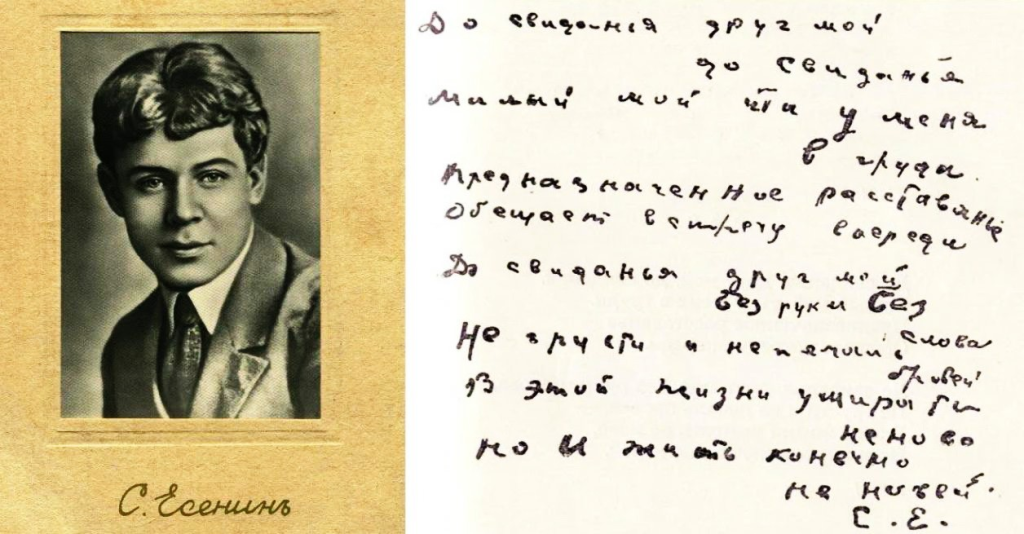 С. Есенинъ
До свиданья друг мой
до свиданья
милый мой ты у меня
в груди.
Предназначенное расставанье
Обещает встречу впереди
До свиданья друг мой
без руки без
слова
Не грусти и не печаль
бровей
В этой жизни умирать
не ново
но и жить конечно
не новей.
С. Е.